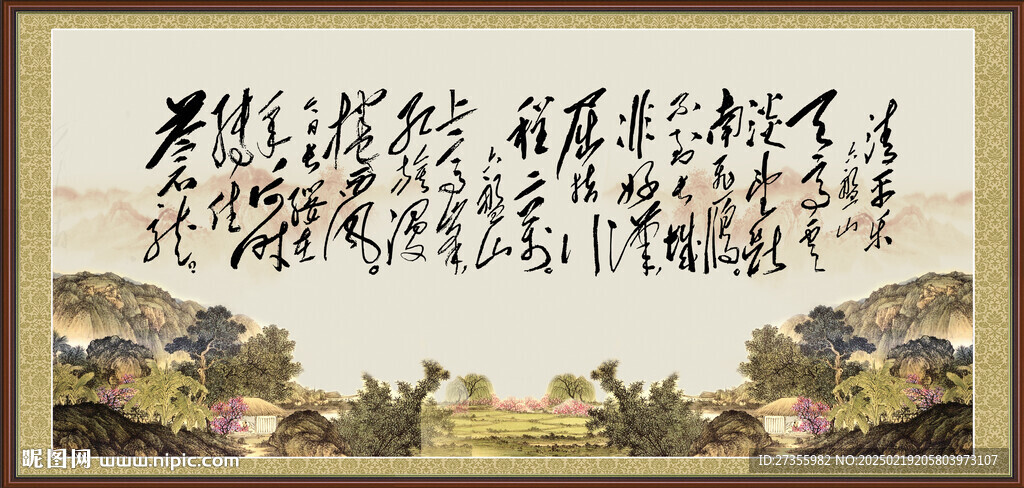 清平乐
六盤山
天高云
淡望断
南飛雁。
不到长城
非好漢,
屈指行
程二万。
六盤山
上高峰,
红旗漫
捲西风。
今日长纓在
手,何时
缚住
苍龙?
昵图网 www.nipic.com
ID:27355982 NO:20250219205803973107